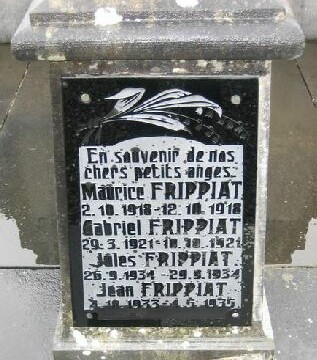 En souvenir de nos
chers petits anges.
Maurice FRIPPIAT
2.10.1918-12.10.1918
Gabriel FRIPPIAT
29.3.1921-10.10.1921
Jules FRIPPIAT
26.9.1934-29.9.1934
Jean FRIPPIAT